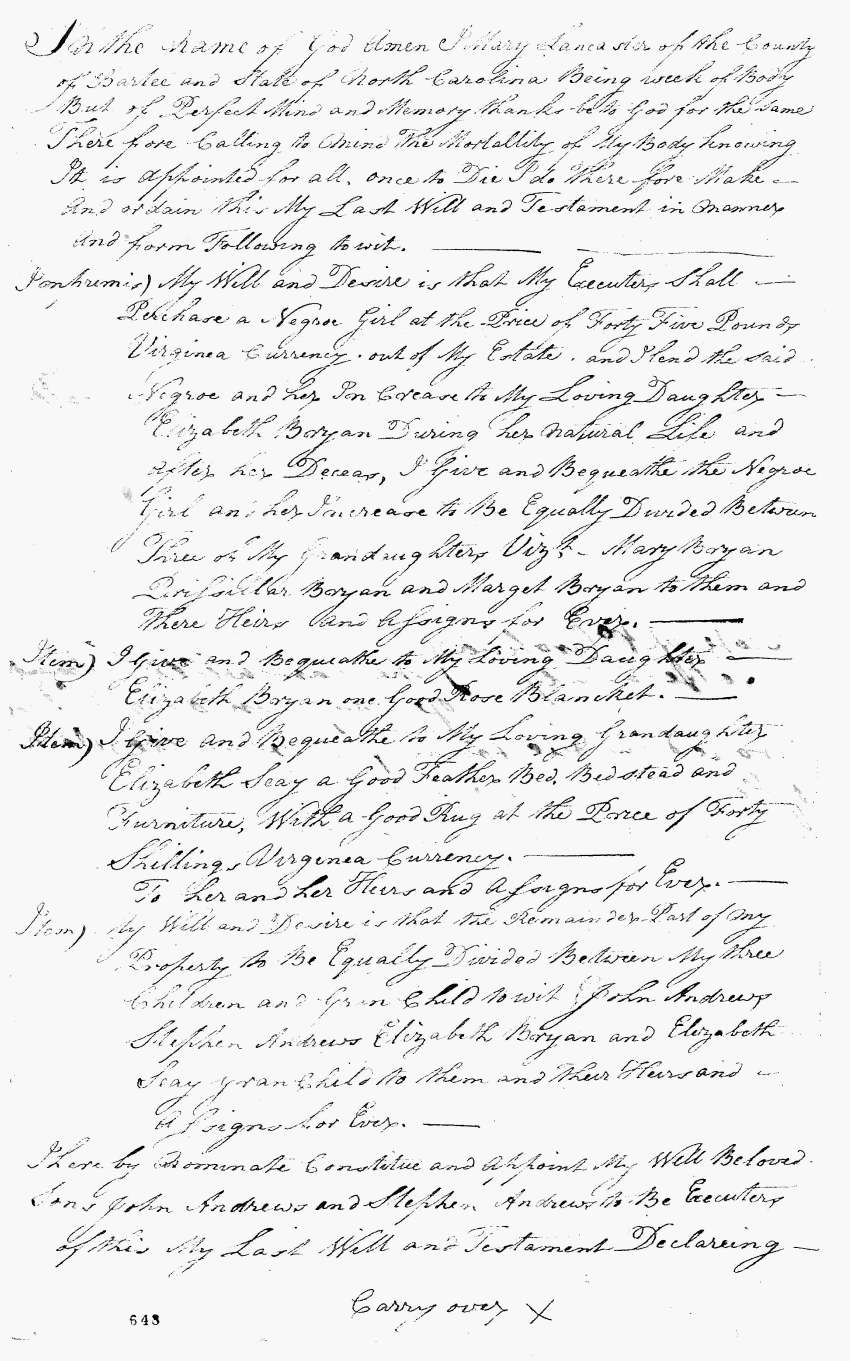 In the Name of God Amen I Mary Lancaster of the County
of Bartee and State of North Carolina Being week of Body
But of Perfect Mind and Memory thanks be to God for the same
There fore Calling to Mind the Mortallity of My Body knowing
It is appointed for all, once to Die I do There fore Make —
And ordain this My Last Will and Testament in Manner
And form Following to wit. —
Imphremis) My Will and Desire is that My Executers Shall —
Perchase a Negroe Girl at the Price of Forty Five Pounds
Virginea Currency. out of My Estate. and I lend the said
Negroe and her In Crease to My Loving Daughter —
Elizabeth Bryan During her natural Life and
after her Deceas, I Give and Bequeathe the Negroe
Girl and her Increase to Be Equally Divided Between
Three of My Grandaughters Vizt - Mary Bryan
Prissillar Bryan and Marget Bryan to them and
there Heirs and Assigns for Ever. —
Item) I Give and Bequeathe to My Loving Daughter —
Elizabeth Bryan one Good Rose Blancket. —
Item) I Give and Bequeathe to My Loving Grandaughter
Elizabeth Seay a Good Feather Bed, Bedstead and
Furniture, With a Good Rug at the Price of Forty
Shillings Virginea Currency. —
To her and her Heirs and Assigns for Ever. —
Item) My Will and Desire is that the Remainder Part of my
Property to Be Equally Divided Between My three
Children and Gran Child to wit John Andrews
Stephen Andrews Elizabeth Bryan and Elizabeth
Seay gran Child to them and their Heirs and —
Assigns for Ever. —
I here by Nominate Constitue and Appoint My Well Beloved
Sons John Andrews and Stephen Andrews to Be Executers
of this My Last Will and Testament Declareing —
Carry over X
643